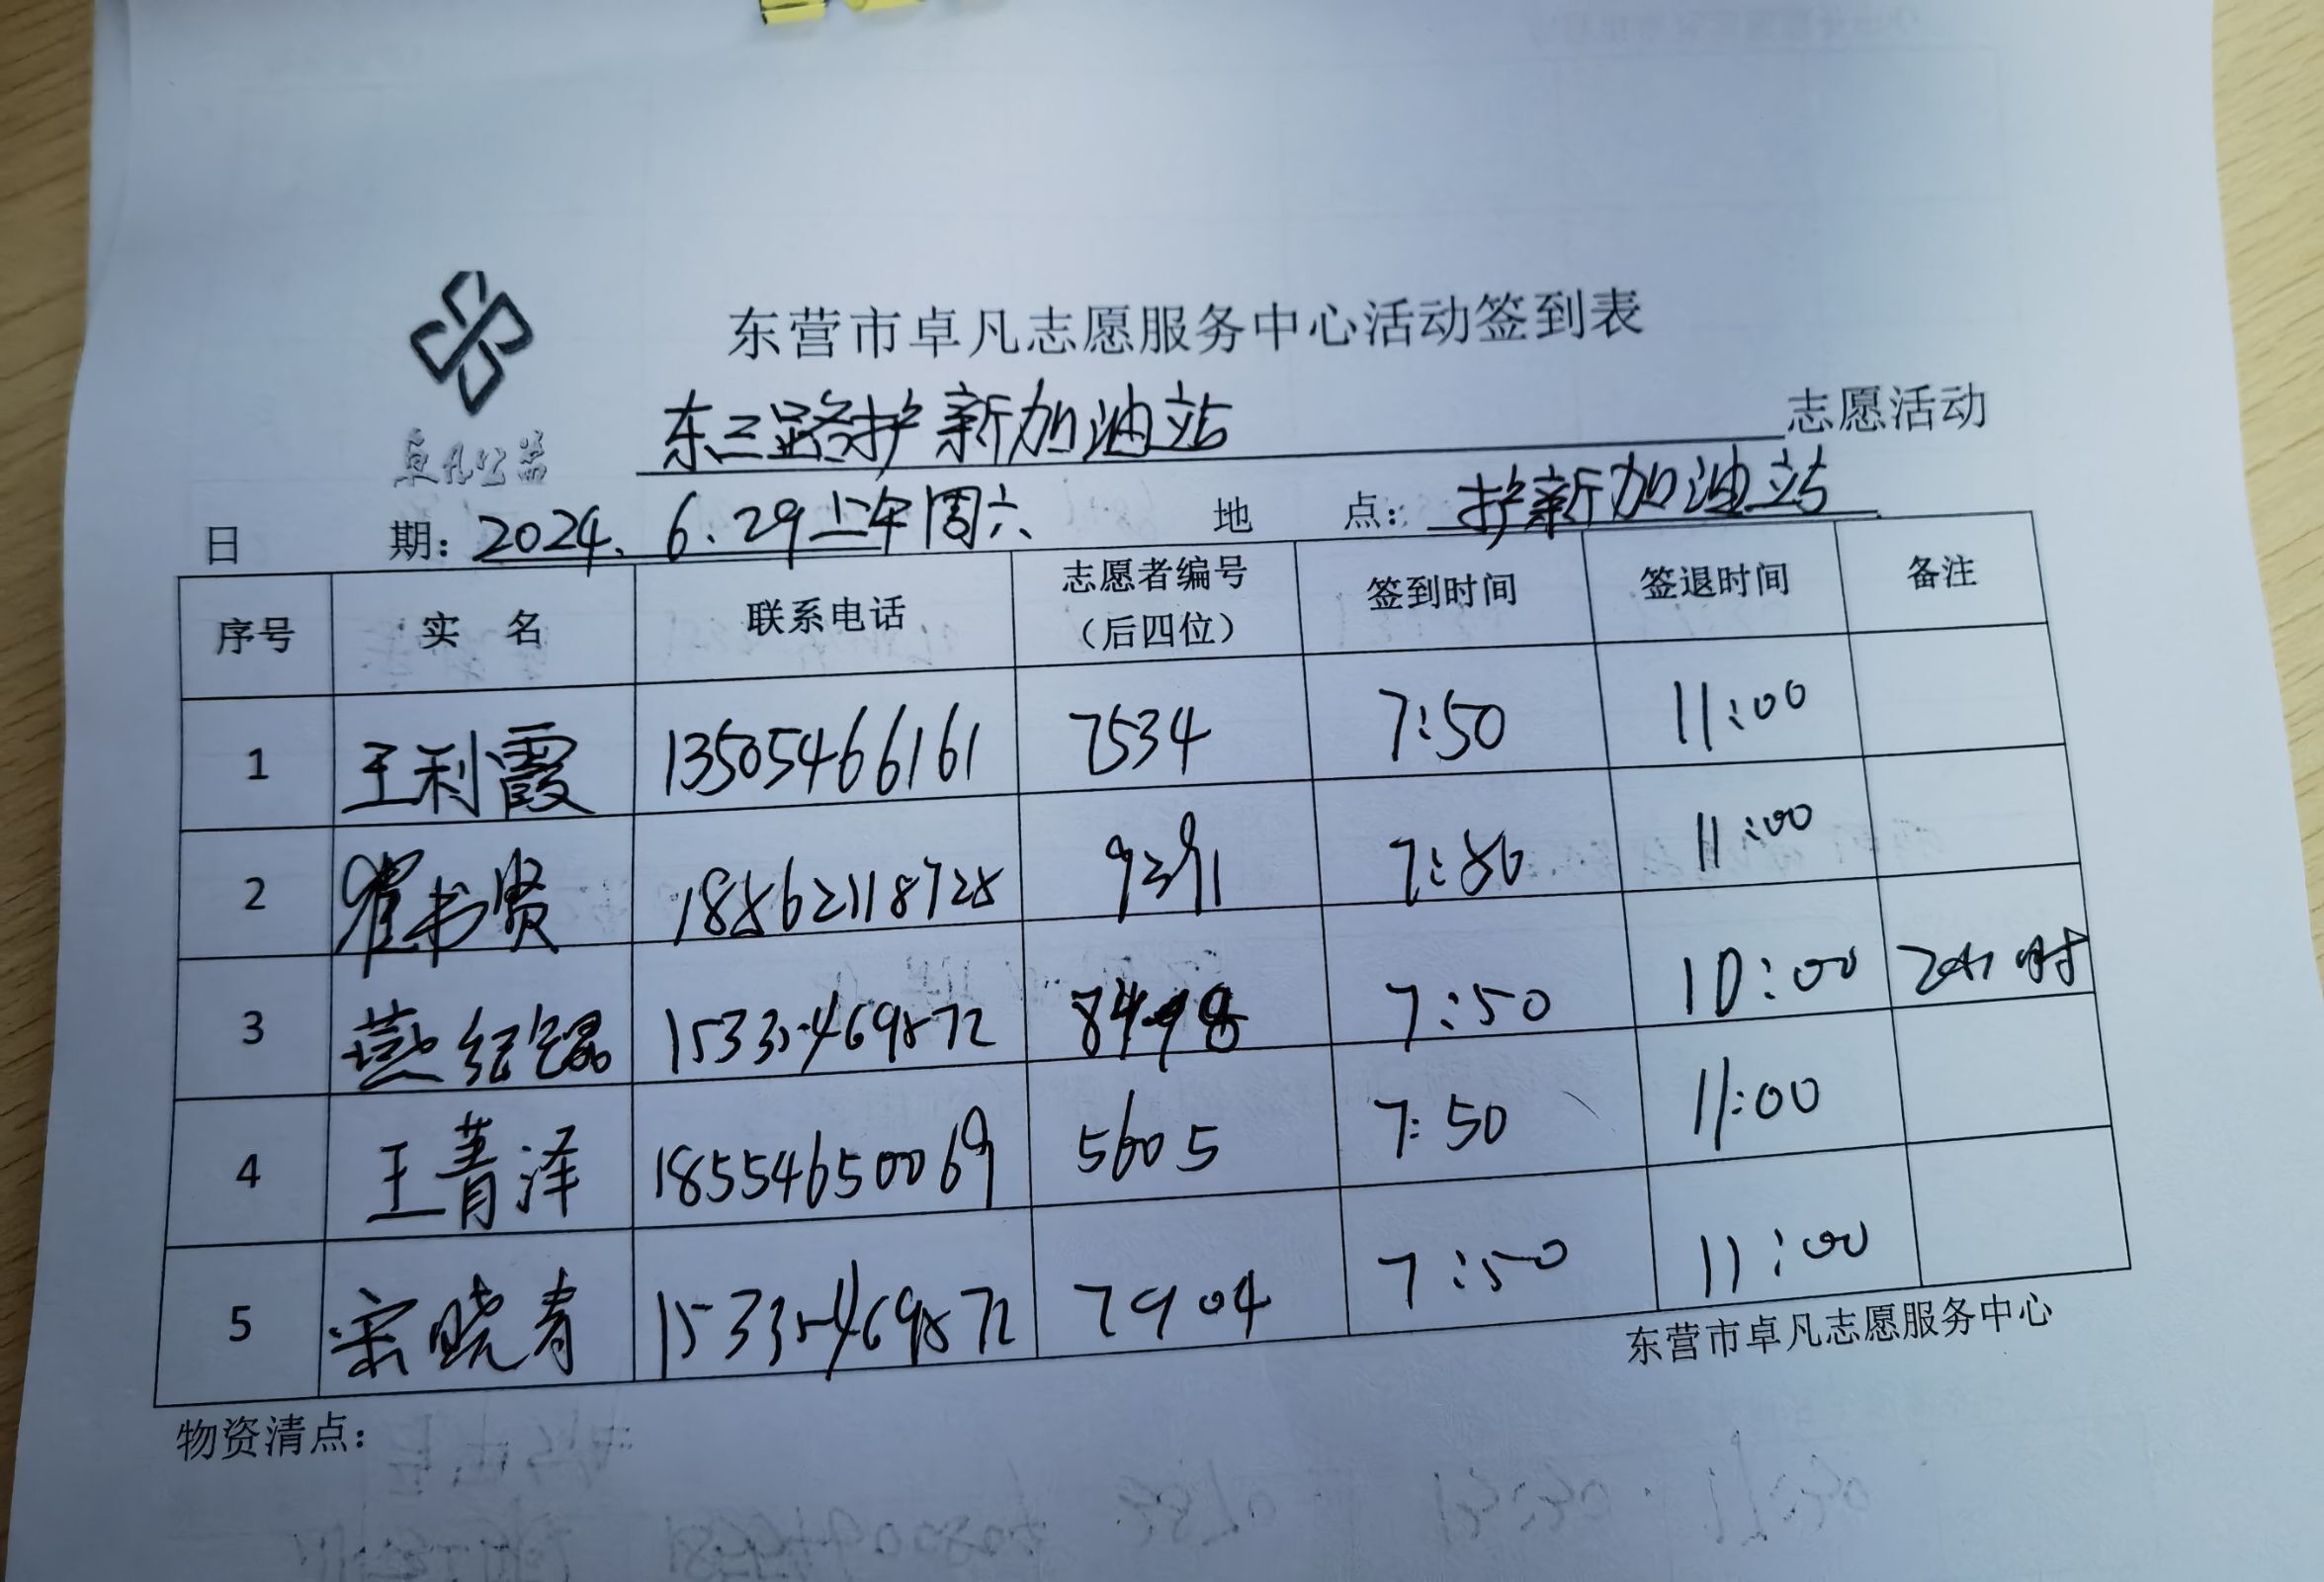 东营市卓凡志愿服务中心活动签到表
卓凡公益
东三路护新加油站 志愿活动
日期：2024.6.29上午周六 地点：护新加油站
序号 实名 联系电话 志愿者编号（后四位） 签到时间 签退时间 备注
1 王利霞 13505466161 7534 7:50 11:00
2 崔书贤 18862118728 9391 7:50 11:00
3 燕纪 15335469872 8498 7:50 10:00 2小时
4 王菁泽 18554650069 5605 7:50 11:00
5 宋晓青 15335469872 7904 7:50 11:00
东营市卓凡志愿服务中心
物资清点：